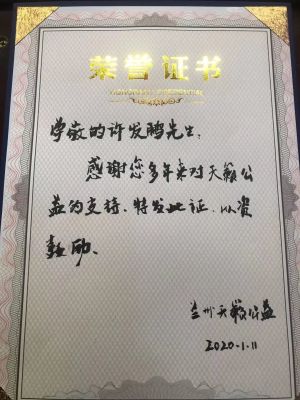 荣誉证书
HONORARY CREDENTIAL
尊敬的许发鹏先生：
感谢您多年来对天籁公
益的支持，特发此证，以资
鼓励。
兰州天籁公益
2020.1.11